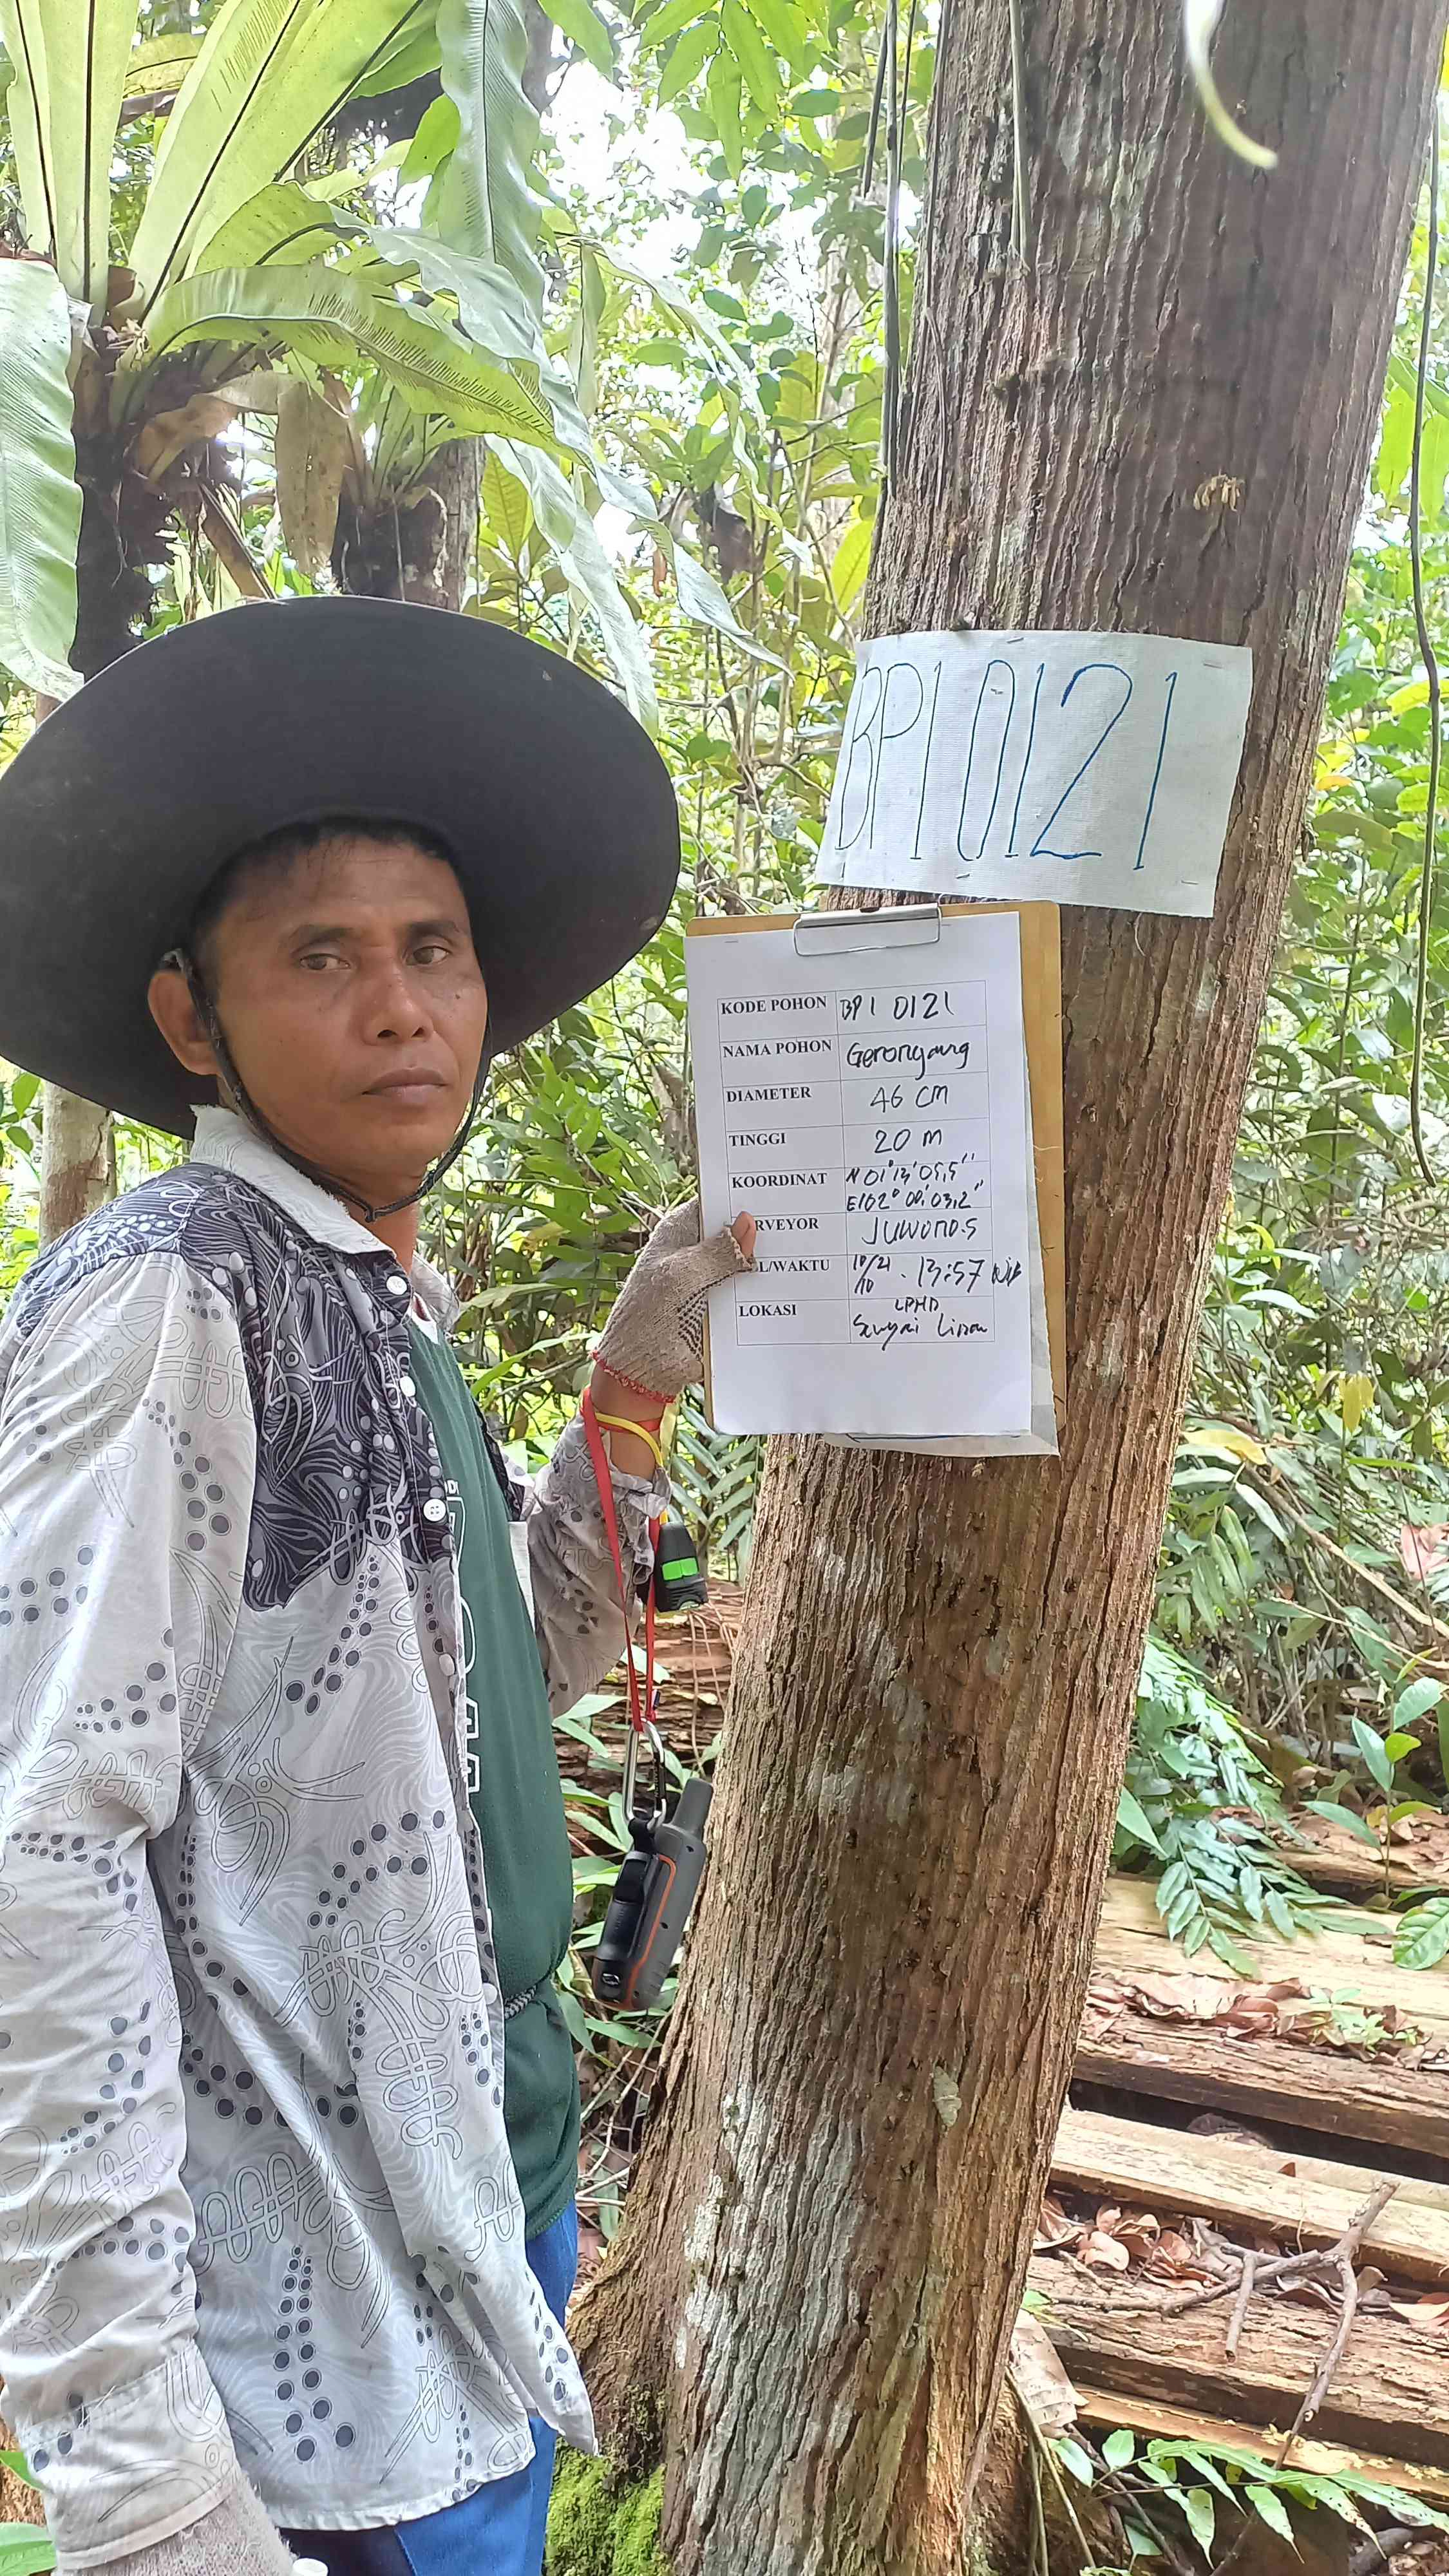 BP1 0121
KODE POHON BP1 0121
NAMA POHON Geronggang
DIAMETER 46 CM
TINGGI 20 M
KOORDINAT N 01° 13' 05,5"
E102° 08' 03,2"
RVEYOR JUWONO.S
L/WAKTU 10/21/10 . 13:57 WIB
LOKASI LPHD
Sungai Linau